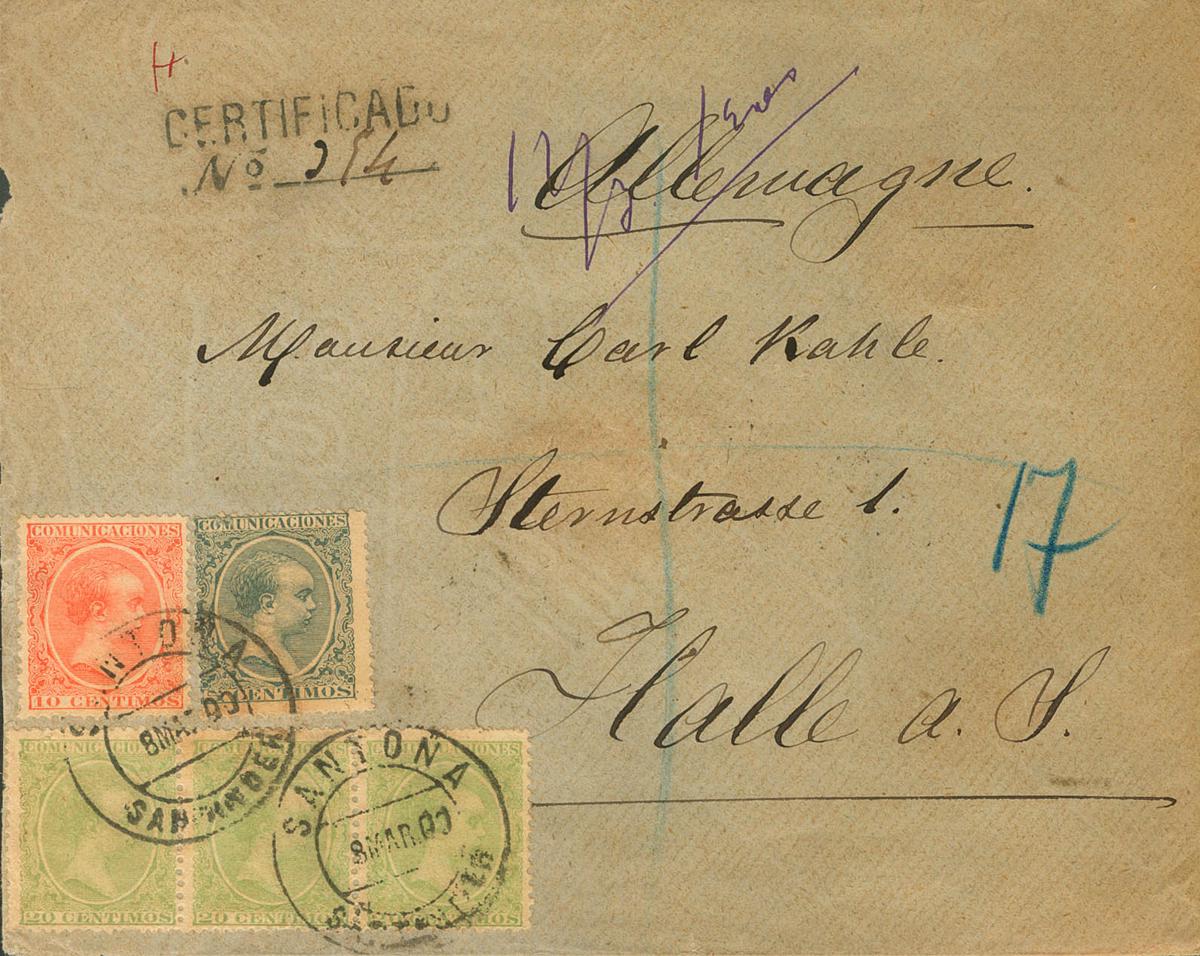 H.
CERTIFICADO
Nº 294
Allemagne.
Monsieur Carl Kahle.
Sternstrasse 1.
17
Halle a. S.
COMUNICACIONES
10 CENTIMOS
COMUNICACIONES
CENTIMOS
SANTOÑA
8 MAR.00
SANTANDER
20 CENTIMOS
20 CENTIMOS
SANTOÑA
8 MAR.00
SANTANDER